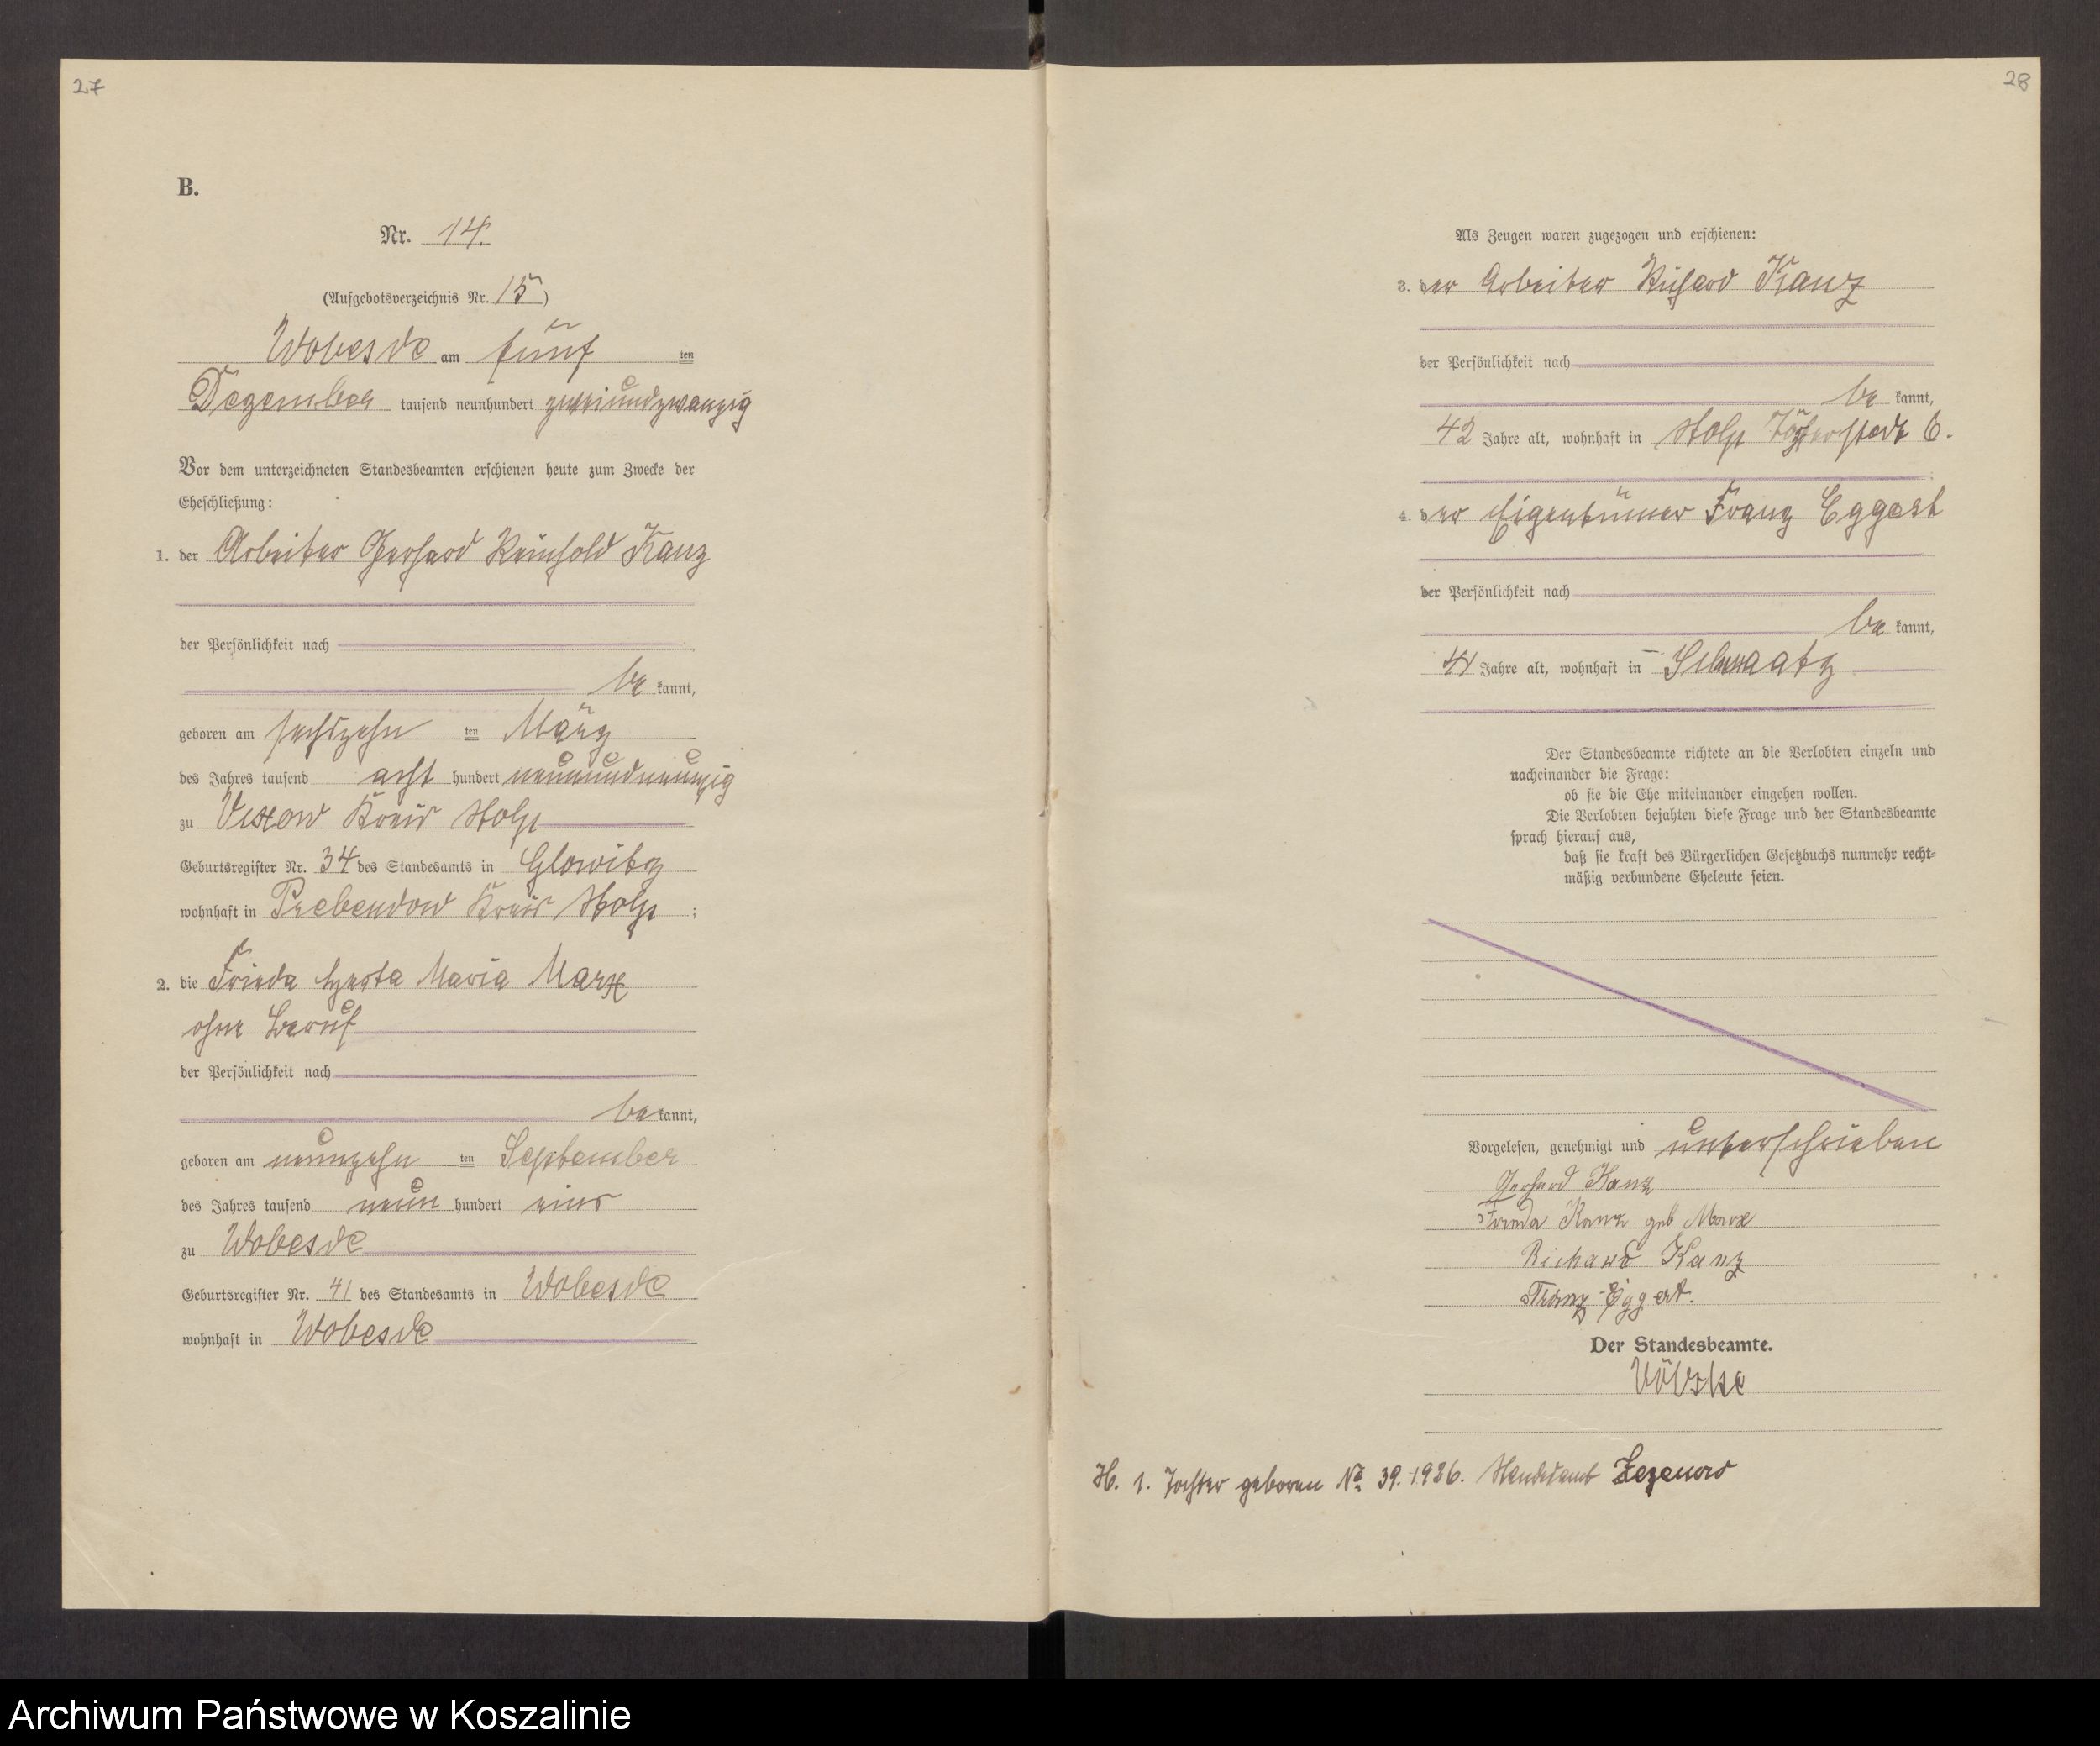 27
B.
Nr. 14.
(Aufgebotsverzeichnis Nr. 15)
Wobesde am fünf ten
Dezember tausend neunhundert zweiundzwanzig
Vor dem unterzeichneten Standesbeamten erschienen heute zum Zwecke der
Eheschließung:
1. der Arbeiter Gerhard Reinhold Kanz
der Persönlichkeit nach
be kannt,
geboren am sechszehn ten März
des Jahres tausend acht hundert neunundneunzig
zu Vixow Kreis Stolp
Geburtsregister Nr. 34 des Standesamts in Glowitz
wohnhaft in Prebendow Kreis Stolp ;
2. die Frieda Agusta Maria Marx
ohne Beruf
der Persönlichkeit nach
be kannt,
geboren am neunzehn ten September
des Jahres tausend neun hundert eins
zu Wobesde
Geburtsregister Nr. 41 des Standesamts in Wobesde
wohnhaft in Wobesde
28
Als Zeugen waren zugezogen und erschienen:
3. der Arbeiter Richard Kanz
der Persönlichkeit nach
be kannt,
42 Jahre alt, wohnhaft in Stolp Töpferstadt 6.
4. der Eigentümer Franz Eggert
der Persönlichkeit nach
be kannt,
41 Jahre alt, wohnhaft in Schmaatz
Der Standesbeamte richtete an die Verlobten einzeln und
nacheinander die Frage:
ob sie die Ehe miteinander eingehen wollen.
Die Verlobten bejahten diese Frage und der Standesbeamte
sprach hierauf aus,
daß sie kraft des Bürgerlichen Gesetzbuchs nunmehr recht-
mäßig verbundene Eheleute seien.
Vorgelesen, genehmigt und unterschrieben
Gerhard Kanz
Frieda Kanz geb Marx
Richard Kanz
Franz Eggert.
Der Standesbeamte.
H. 1. Tochter geboren No 39. 1926. Standesamt Zezenow
Archiwum Państwowe w Koszalinie